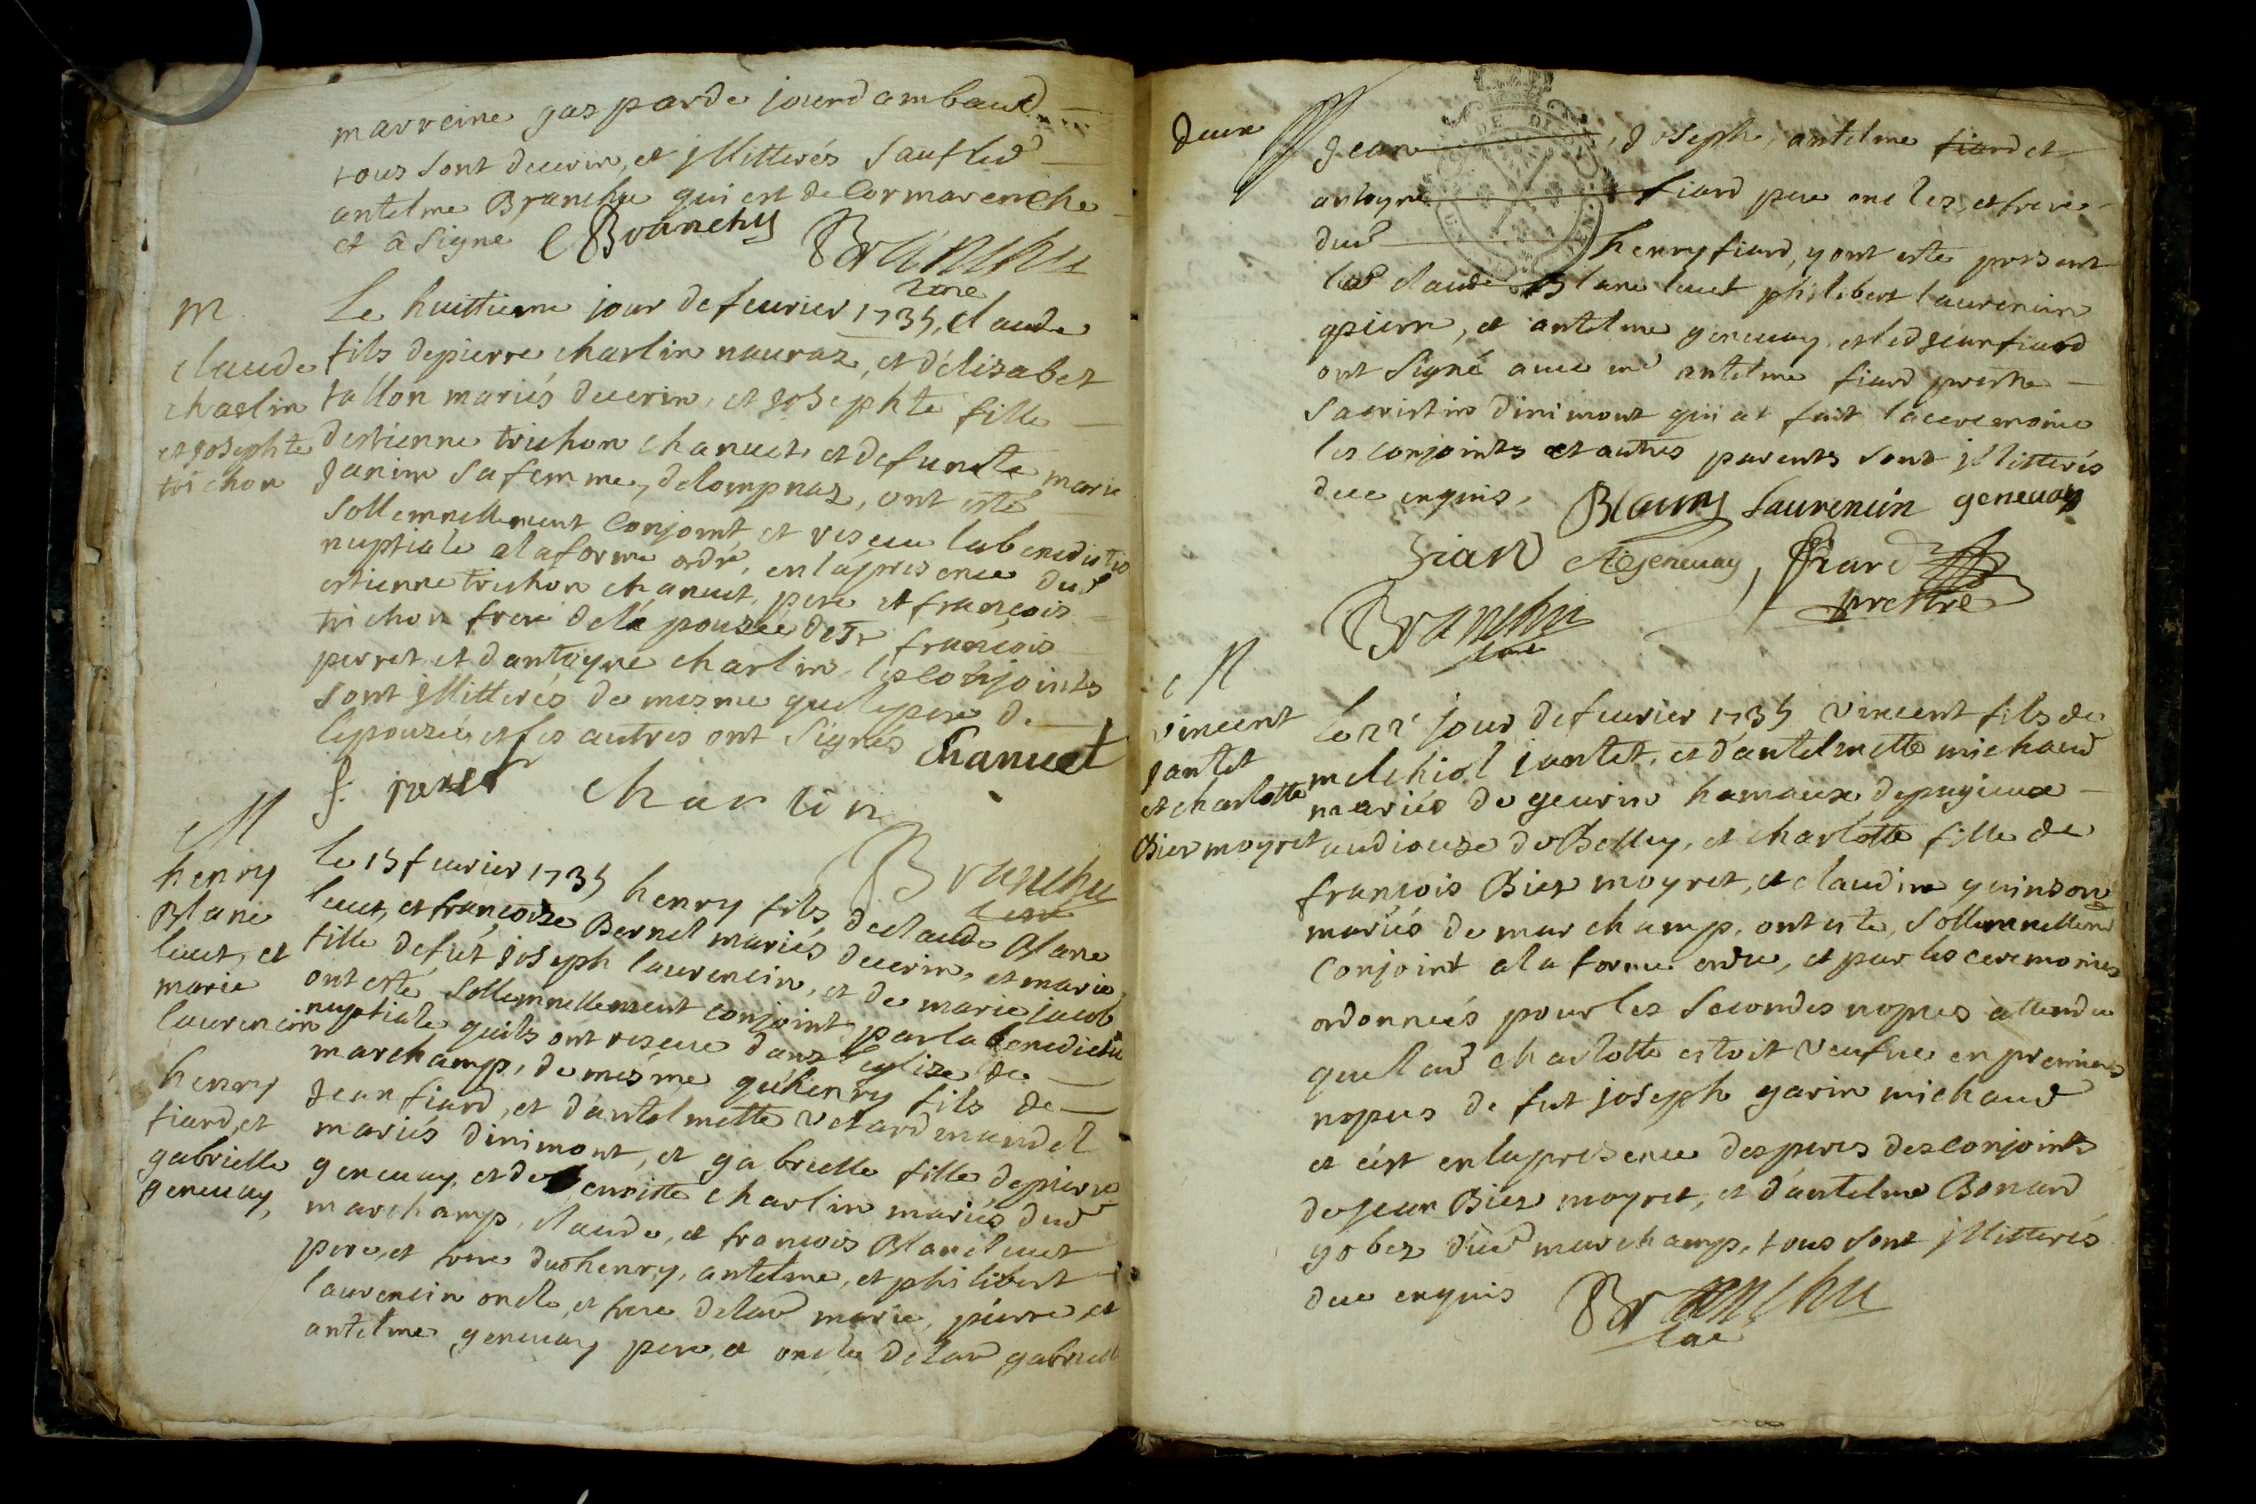 marreine gasparde jourdambaud
tous sont decerin, et jllitterés sauf led
antelme Branchu qui est de Cormarenche
et a signe Branchy Branchu
m
claude
charlin
et josephte
trichon
Le huittieme jour de feurier 1735, claude
fils depierre charlin nauraz, et d'élizabet
tallon mariés decerin, et josephte fille
destienne trichon chanuet, et defuncte marie
janin sa femme, delompnaz, ont esté
sollemnellement Conjoint, et reseue labenedictio
nuptiale alaforme ordre, en lapresence dud
estienne trichon chanuet, pere et françois
trichon frere delépouzée de Sr françois
perret et dantoyne charlin, les Conjoints
sont jllitterés de mesme que le pere de
lepouzée et les autres ont signés Chanuet
f. peret charlin
Branchu
curé
M
henry
Blanc
luet, et
marie
laurencin
henry
fiard, et
gabrielle
geneuay,
le 15 feurier 1735 henry fils declaude Blanc
luet, et françoize Bernel mariés decerin, et marie
fille defut joseph laurencin, et de marie jacob
ont esté sollemnellement conjoint parla benedictio
nuptiale quils ont reseue dans leglize de
marchamp, de mesme qu'henry fils de
jean fiard, et d'antelmette velard mandel
mariés dinimont, et gabrielle fille depierre
geneuay, et de henriette charlin mariés dud
marchamp, claude, et francois Blancluet
pere, et frere dud henry, antelme, et philibert
laurencin oncle, et frere delad marie, pierre, et
antelme geneuay pere, et oncle delad gabrielle
deux
jean, joseph, antelme fiard et
antoyne fiard pere oncles, et frere
dud henry fiard, y ont esté present
led claude Blanc luet philibert laurencin
pierre, et antelme geneuay, et led jean fiard
ont signé auec me antelme fiard prestre
sacristin dinimont qui at fait laceremonie
les conjoints et autres parents sont jllitterés
dece enquis, Blanc laurencin geneuay
fiard A geneuay, fiard
prestre
Branchu
curé
M
vincent
jantet
et charlotte
Biez moyret
Le 22e jour defeurier 1735 vincent fils de
melchiol jantet, et d'antelmette michaud
mariés de geurin hamaux depugieux
audioceze de Belley, et charlotte fille de
françois Biez moyret, et claudine guinson
mariés de marchamp, ont esté, sollemnellem
Conjoint alaforme ordre, et par les ceremonies
ordonneés pour les secondes nopces attendu
que lad charlotte estoit veufue en premieres
nopces de fut joseph garin michaud
et c'est enlapresence des peres des conjoints
de jean Biez moyret, et d'antelme Bonard
gobez dud marchamp, tous sont jllitterés
dece enquis Branchu
curé